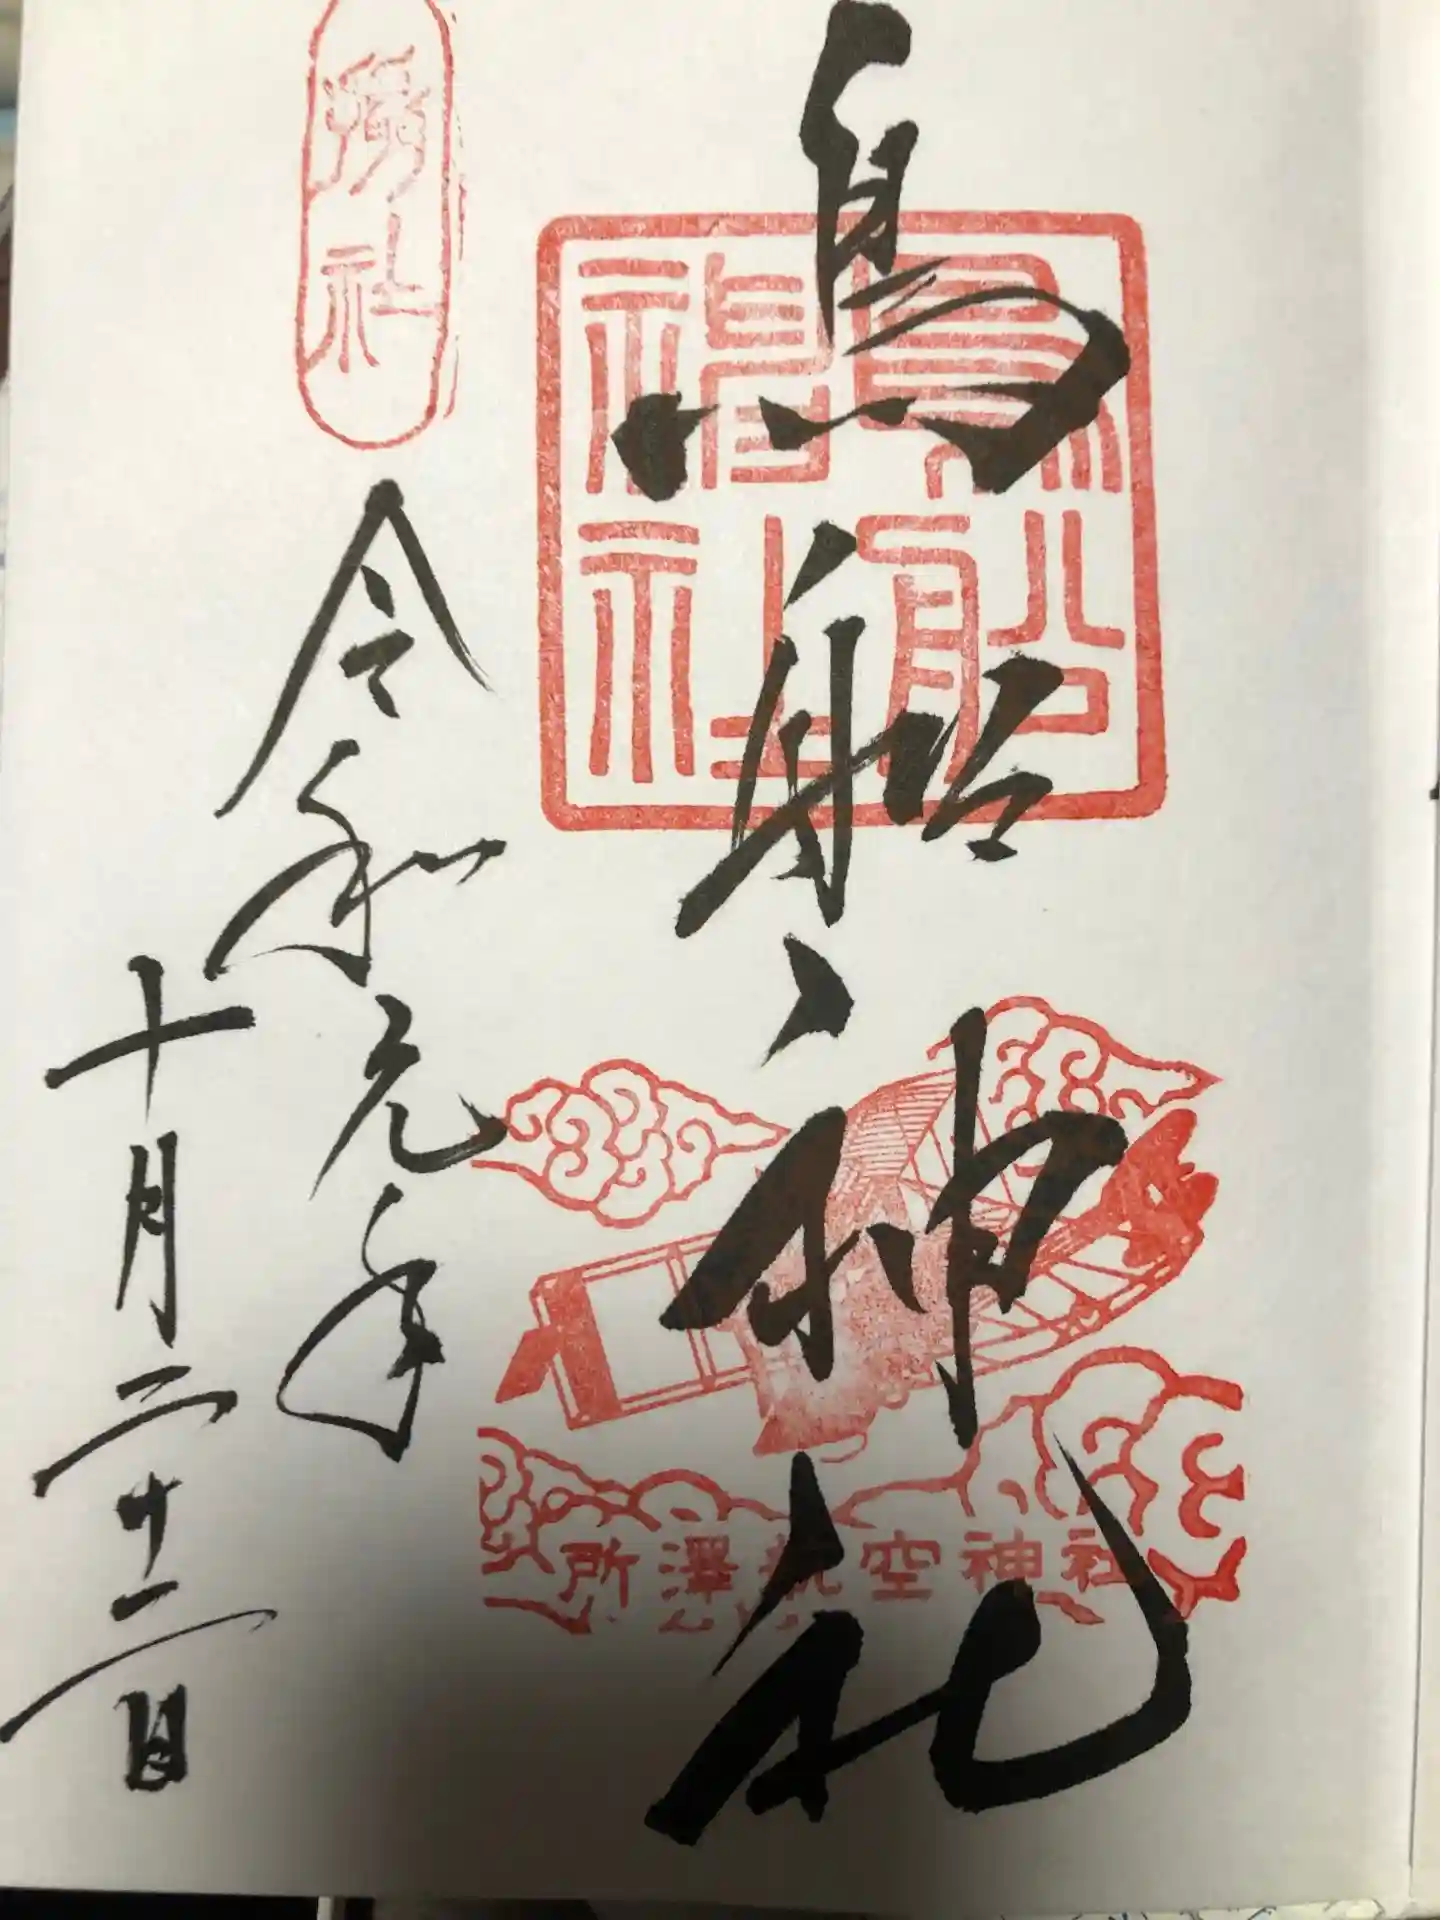 鳥船神社
鳥船神社
所澤航空神社
摂社
令和元年
十月二十二日